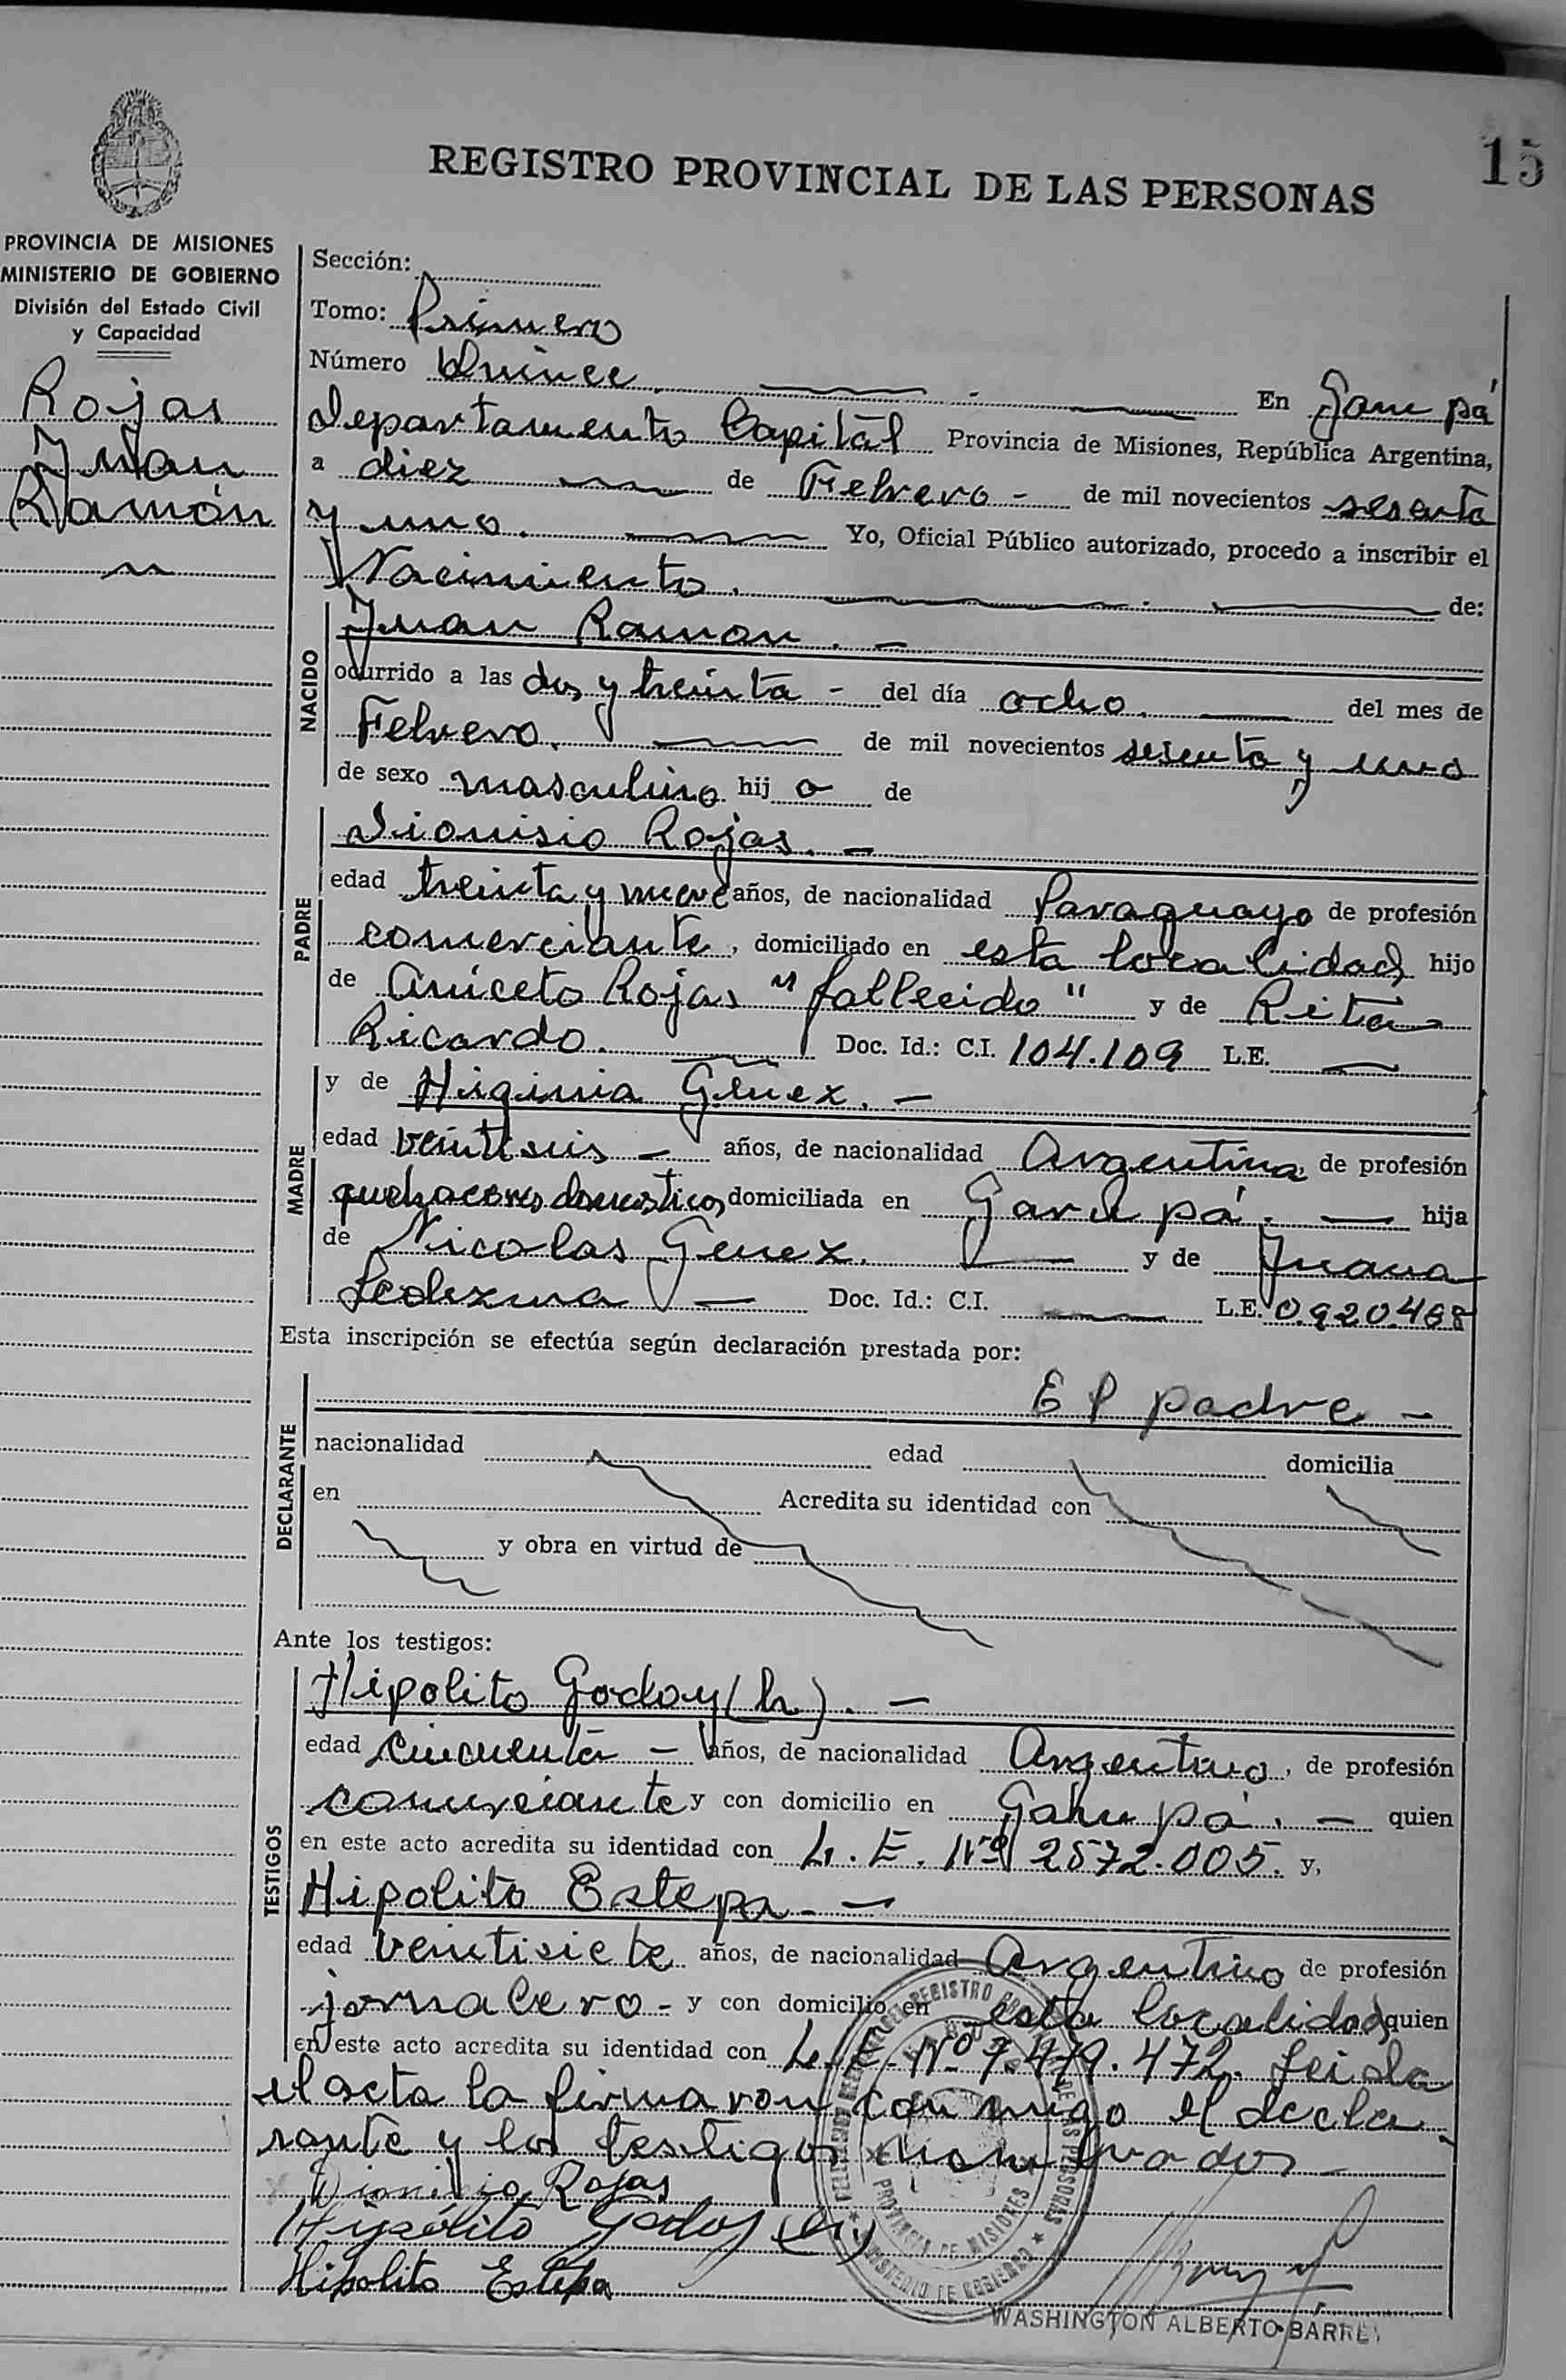 15
REGISTRO PROVINCIAL DE LAS PERSONAS
PROVINCIA DE MISIONES
MINISTERIO DE GOBIERNO
División del Estado Civil
y Capacidad
Rojas
Juan
Ramón
Sección:
Tomo: Primero
Número Quince. En Garupá
Departamento Capital Provincia de Misiones, República Argentina,
a diez de Febrero - de mil novecientos sesenta
y uno. Yo, Oficial Público autorizado, procedo a inscribir el
Nacimiento. de:
NACIDO
Juan Ramon. -
ocurrido a las dos y treinta - del día ocho. del mes de
Febrero. de mil novecientos sesenta y uno
de sexo masculino hij o de
PADRE
Dionisio Rojas. -
edad treinta y nueve años, de nacionalidad Paraguayo de profesión
comerciante, domiciliado en esta localidad hijo
de Aniceto Rojas "fallecido" y de Rita
Ricardo. Doc. Id.: C.I. 104.109 L.E.
MADRE
y de Higinia Génez. -
edad veintiseis - años, de nacionalidad Argentina de profesión
quehaceres domesticos domiciliada en Garupá. - hija
de Nicolas Genez. y de Juana
Ledezma - Doc. Id.: C.I. L.E. 0.920.468
Esta inscripción se efectúa según declaración prestada por:
DECLARANTE
El padre -
nacionalidad edad domicilia
en Acredita su identidad con
y obra en virtud de
Ante los testigos:
TESTIGOS
Hipolito Godoy (h). -
edad cincuenta - años, de nacionalidad Argentino, de profesión
comerciante y con domicilio en Garupá. - quien
en este acto acredita su identidad con L.E. Nº 2572.005. y,
Hipolito Estepa - -
edad veintisiete años, de nacionalidad Argentino de profesión
jornalero - y con domicilio en esta localidad quien
en este acto acredita su identidad con L.E. Nº 7.479.472. Leida
el acta la firmaron conmigo el decla
rante y los testigos nombrados -
Dionisio Rojas
Hipólito Godoy (h)
Hipolito Estepa
REGISTRO DE LAS PERSONAS
PROVINCIA DE MISIONES
MINISTERIO DE GOBIERNO
WASHINGTON ALBERTO